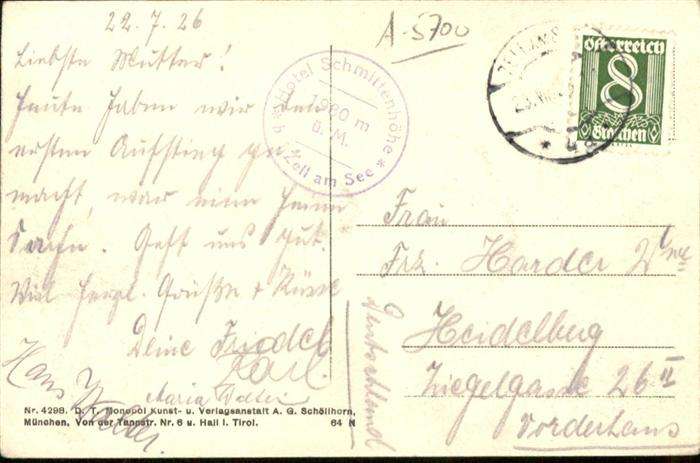 22.7.26
A-5700
Liebste Mutter!
Heute haben wir den
ersten Aufstieg ge
macht, war eine feine
Sache. Geht uns gut.
Viel herzl. Grüße + Küsse
Deine Friedel
Karl
Hans
Maria
Hotel Schmittenhöhe
1980 m
ü. M.
Zell am See
Österreich
8
Groschen
Frau
Frz. Harder Wwe
Heidelberg
Ziegelgasse 26 II
Vorderhaus
Deutschland
Nr. 4298. D. T. Monopol Kunst- u. Verlagsanstalt A. G. Schöllhorn,
München, Von der Tannstr. Nr. 6 u. Hall i. Tirol. 64 N